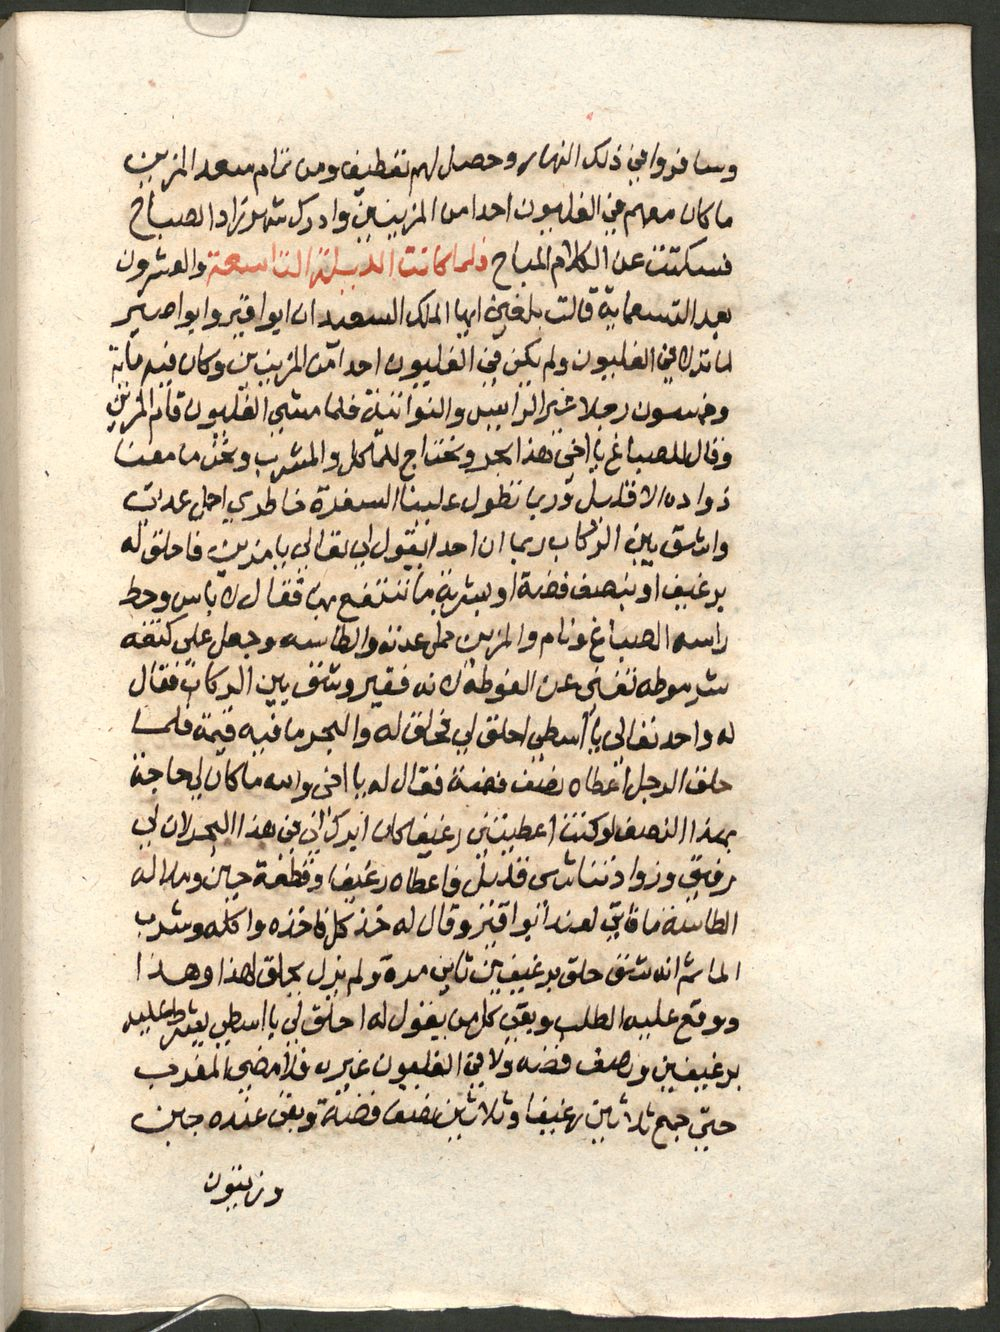 وسافروا في ذلك النهار وحصل لهم تقطيف ومن تمام سعد المزين
ما كان معهم في الغليون احدا من المزينين وادرك شهرزاد الصباح
فسكتت عن الكلام المباح فلما كانت الليلة التاسعة والعشرون
بعد التسعماية قالت بلغني ايها الملك السعيد ان ابو اقير وابو اصير
لما نزلا في الغليون ولم يكن في الغليون احدا من المزينين وكان فيه ماية
وخمسون رجلا غير الرايس والنواتية فلما مشي الغليون قام المزين
وقال للصباغ يا اخي هذا بحر ونحتاج للماكل والمشرب ونحن ما معنا
زواده الا قليل وربما تطول علينا السفرة خاطري احمل عدتي
واشق بين الركاب ربما ان احدا يقول لي تعالي يا مزين فاحلق له
برغيف او بنصف فضة او بشربة ما ننتفع بها فقال لا باس وحط
راسه الصباغ ونام والمزين حمل عدته والطاسه وجعل على كتفه
شرموطه تغني عن الفوطة لانه فقير وشق بين الركاب فقال
له واحد تعالي يا اسطي احلق لي فحلق له والبحر ما فيه قيمة فلما
حلق الرجل اعطاه نصف فضة فقال له يا اخي والله ما كان لي حاجة
بهذا النصف لو كنت اعطيتني رغيفا كان ابرك لي في هذا البحر لان لي
رفيق وزوادتنا شي قليل فاعطاه رغيفا وقطعة جبن وملا له
الطاسة ماء اتي لعند ابو اقير وقال له خذ كل فاخذه واكله وشرب
الما ثم انه شق حلق برغيفين تاني مرة ولم يزل يحلق لهذا وهذا
ووقع عليه الطلب وبقي كل من يقول له احلق لي يا اسطي يشرط عليه
برغيفين ونصف فضه ولا في الغليون غيره فلا مضي المغرب
حتي جمع ثلاثين رغيفا وثلاثين نصف فضة وبقى عنده جبن
وزيتون